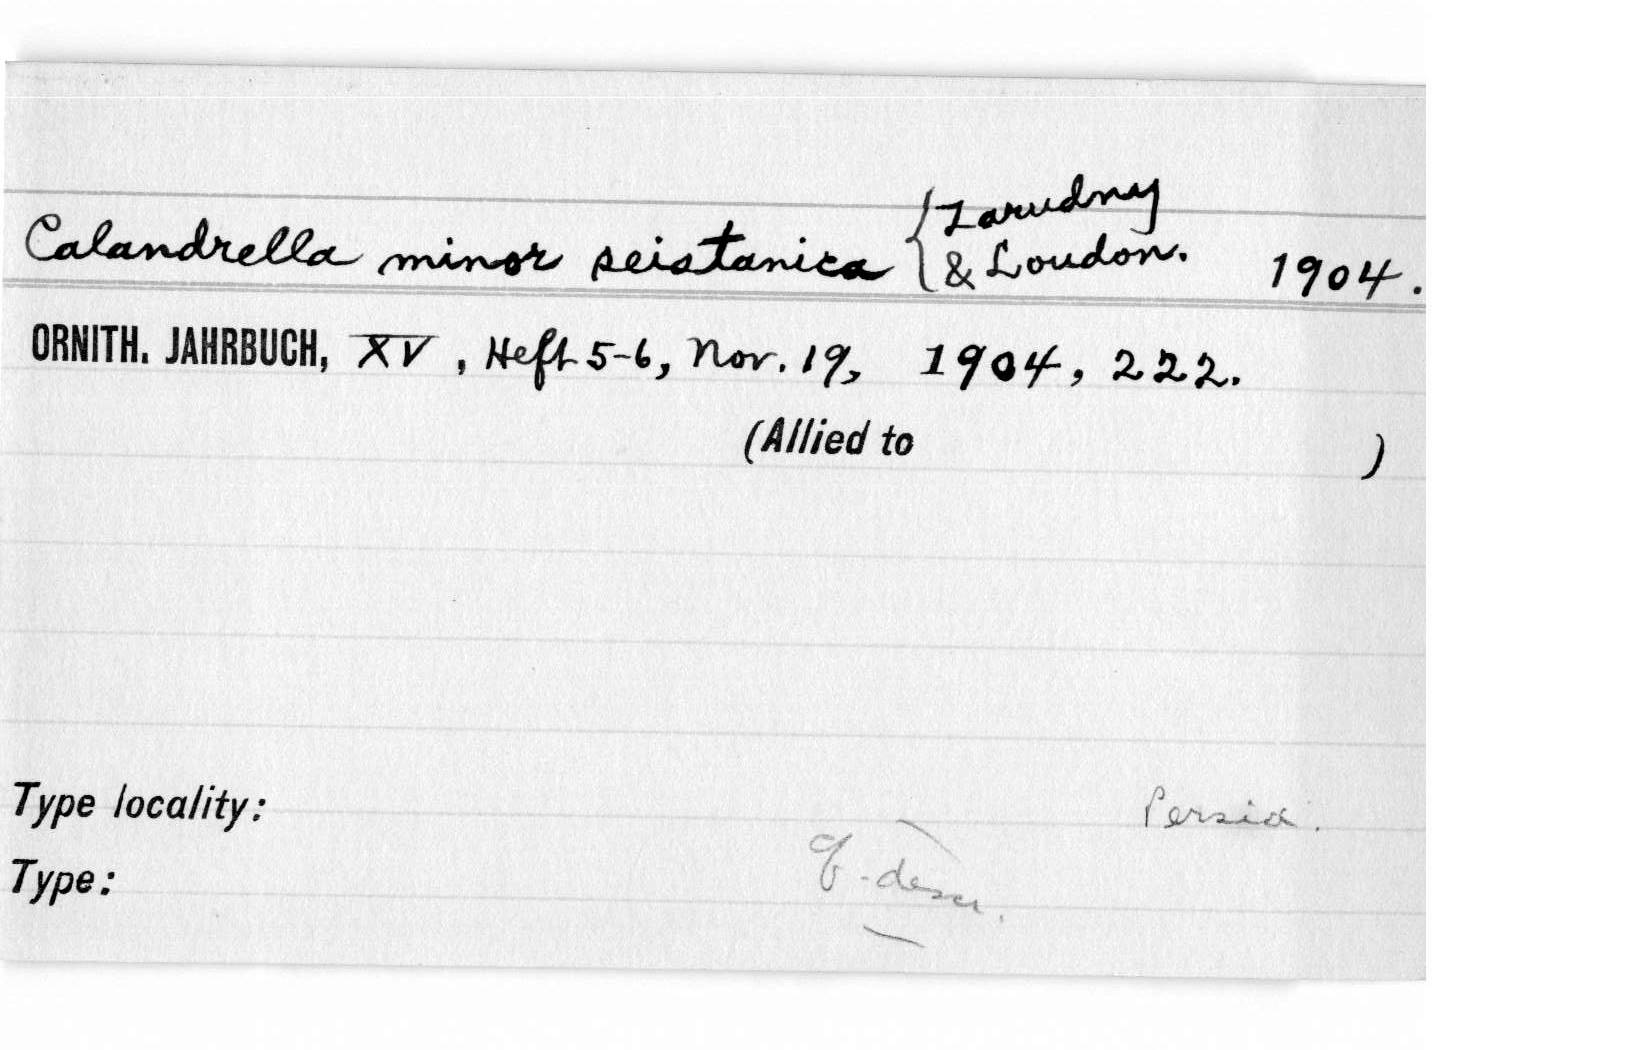 Calandrella minor seistanica { Zarudny
& Loudon. 1904.
ORNITH. JAHRBUCH, XV, Heft 5-6, Nov. 19, 1904, 222.
(Allied to )
Type locality: Persia.
Type: descr.